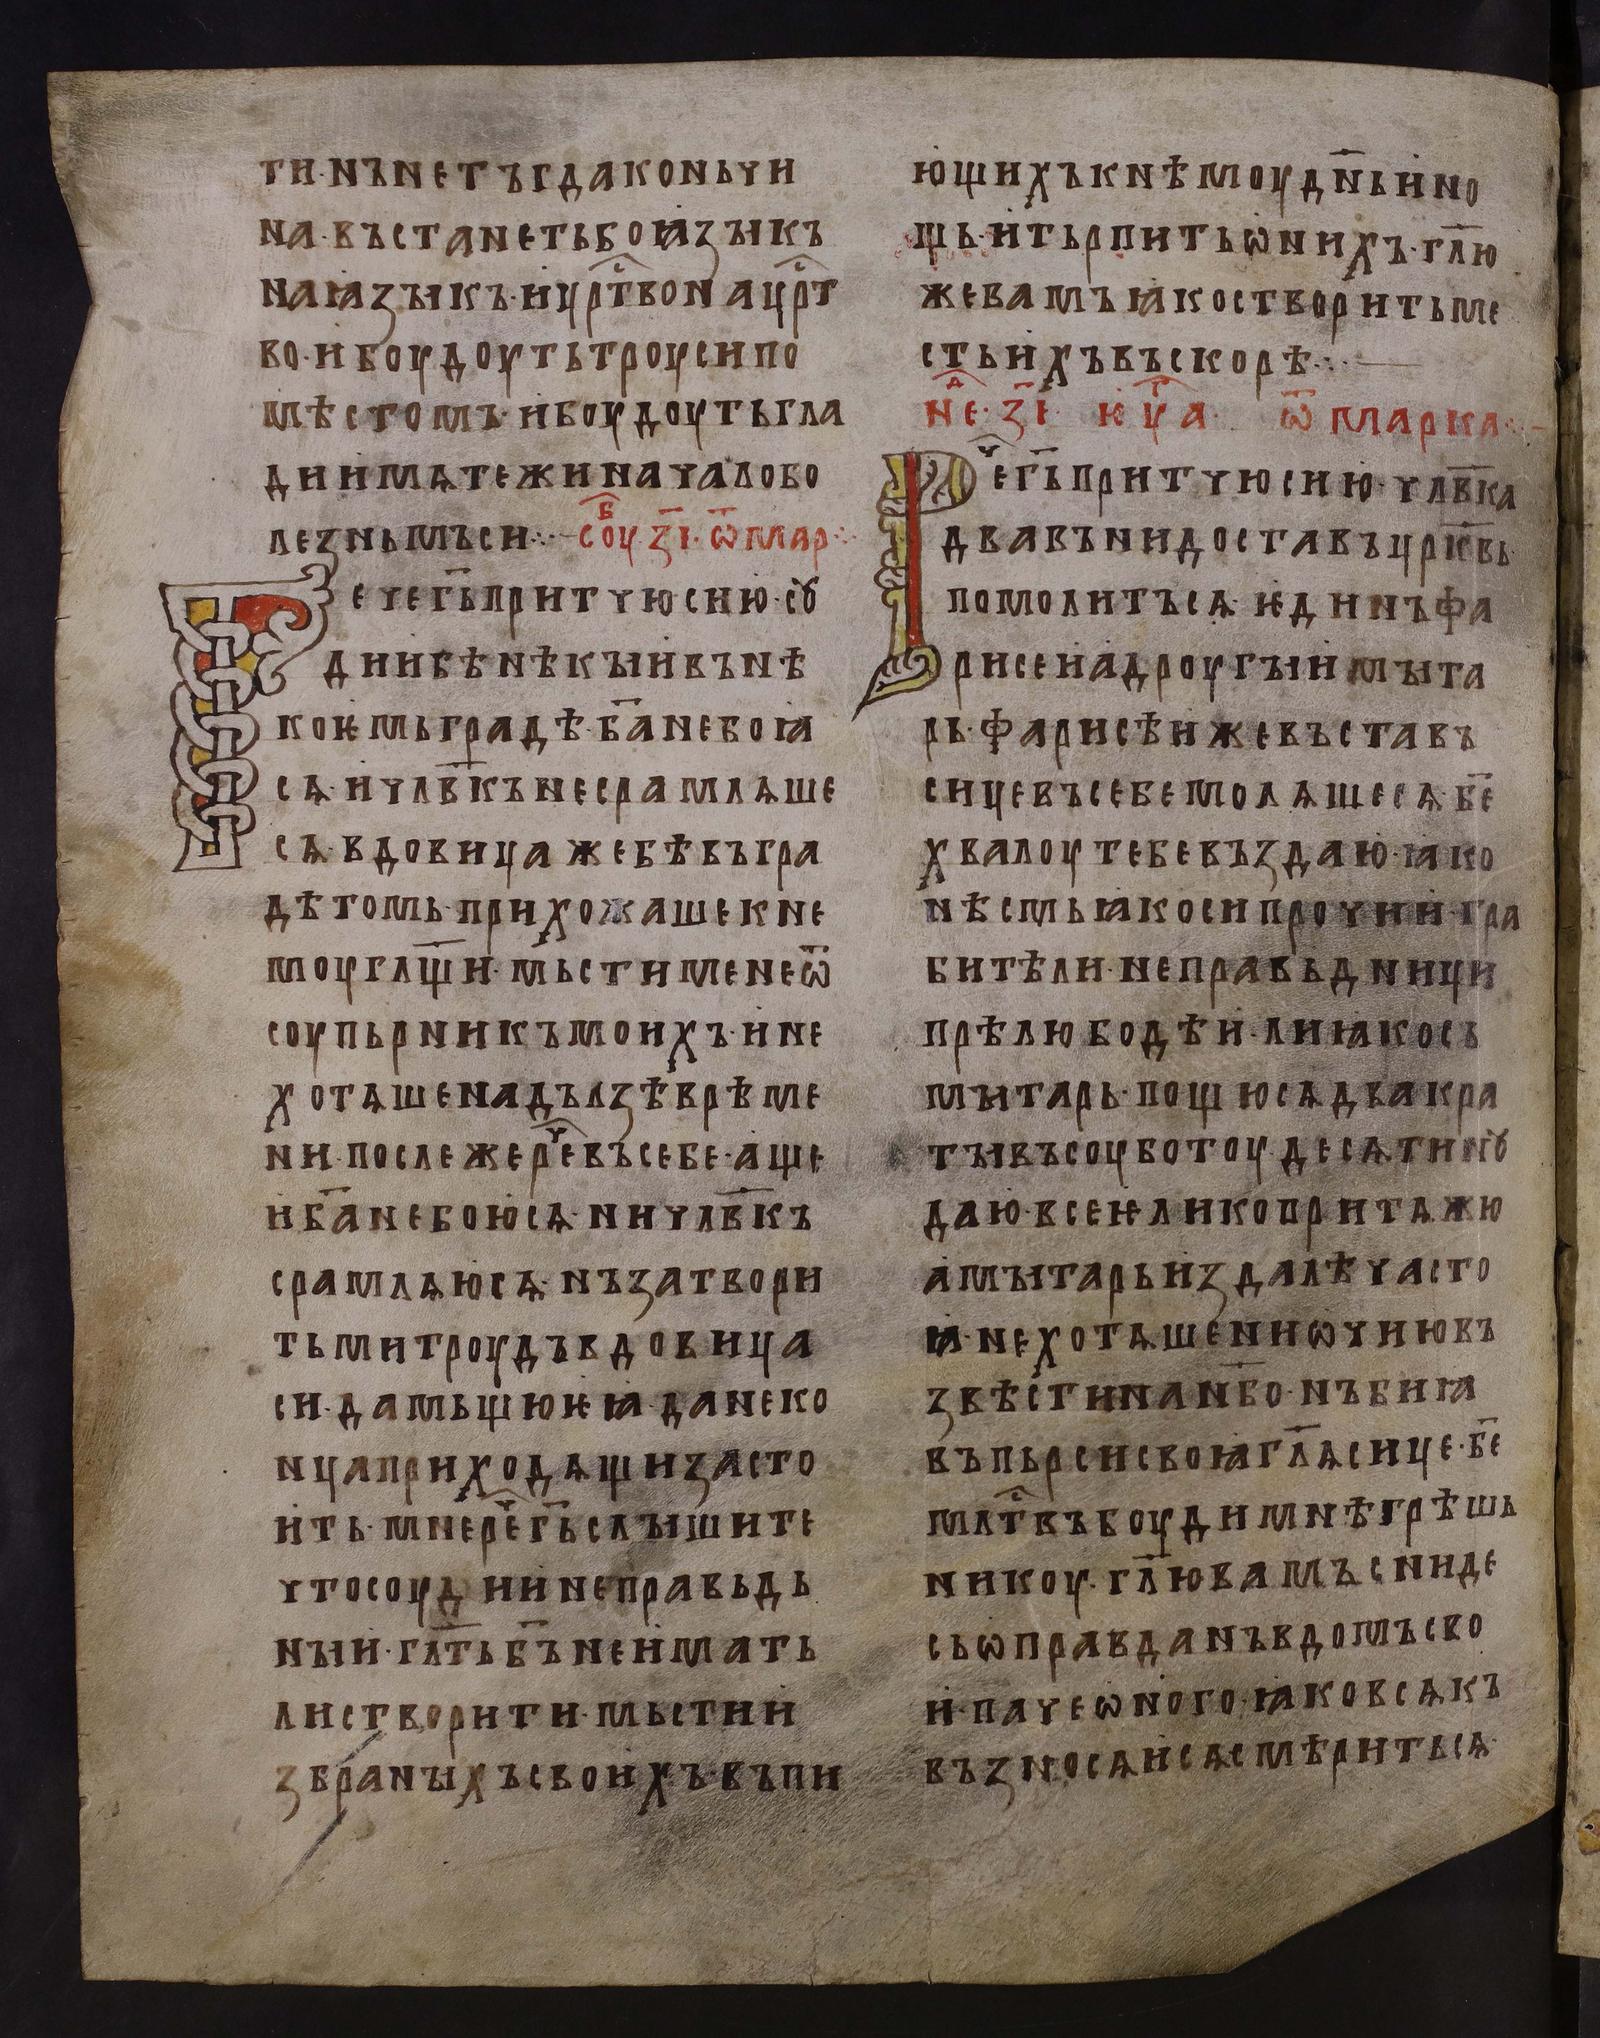 ти·нънетъгдаконьчи
на·въстанетьбоꙗзꙑкъ
наꙗзꙑкъ·ицр҇твонацр҇т
во·ибоудоутьтроусипо
мѣстомъ·ибоудоутьгла
диимѧтежиначалобо
лезньмъси·:·соуⷠз҃і·ѿмар·:·
Речегь҃притчюсию·сꙋ
диибѣнѣкꙑивънѣ
коѥмьградѣ·ба҃небоꙗ
сѧ·ичлв҃къне­срамлѧше
сѧ·вдовицажебѣвъгра
дѣтомь·прихожашекне
моуглщ҃и·мьстименеѿ
соупьрникъмоихъ·ине
хотѧшенадълзѣврѣме
ни·послежереⷱвъсебе·аще
иба҃небоюсѧ·ничлв҃къ
срамлѧюсѧ·нъзатвори
тьмитроудъвдовица
си·дамьщюѥꙗ·данеко
нцаприходѧщизасто
ить·мнереⷱгь҃слꙑшите
чтосоудиинеправьдь
нꙑи·глт҃ьбъ҃неимать
листворити·мьстии
збранꙑхъсвоихъ·въпи
ющихъкнѣмоудн҃ьино
щь·итьрпитьѡнихъ·гл҃ю
жевамъꙗкостворитьме
стьихъвъскорѣ·:·
неⷣ·з҃і·ѥцⷢа·ѿмарка·:·
Рⷱегь҃притчюсию·члв҃ка
двавънидоставъцрк҃вь
помолитъсѧ·ѥдинъфа
рисеиадроугꙑимꙑта
рь·фарисѣижевъставъ
сицевъсебемолѧшесѧ·бе҃
хвалоутебевъздаю·ꙗко
нѣсмьꙗкосипрочии·гра
битѣли·неправьдници
прѣлюбодѣи·лиꙗкось
мꙑтарь·пощюсѧдвакра
тꙑвъсоуботоу·десѧтинꙋ
даю·всеѥликопритѧжю
амꙑтарьиздалѣчасто
ꙗ·нехотѧшениѡчиювъ
звѣстинанб҃о·нъбиꙗ
въпьрсисвоꙗгл҃ѧсице·бе҃
млт҇въбоудимнѣгрѣшь
никоу·гл҃ювамъсниде
сьѡправданъвдомъсво
и·пачеѡного·ꙗковсѧкъ
възносѧисѧсмѣритьсѧ·